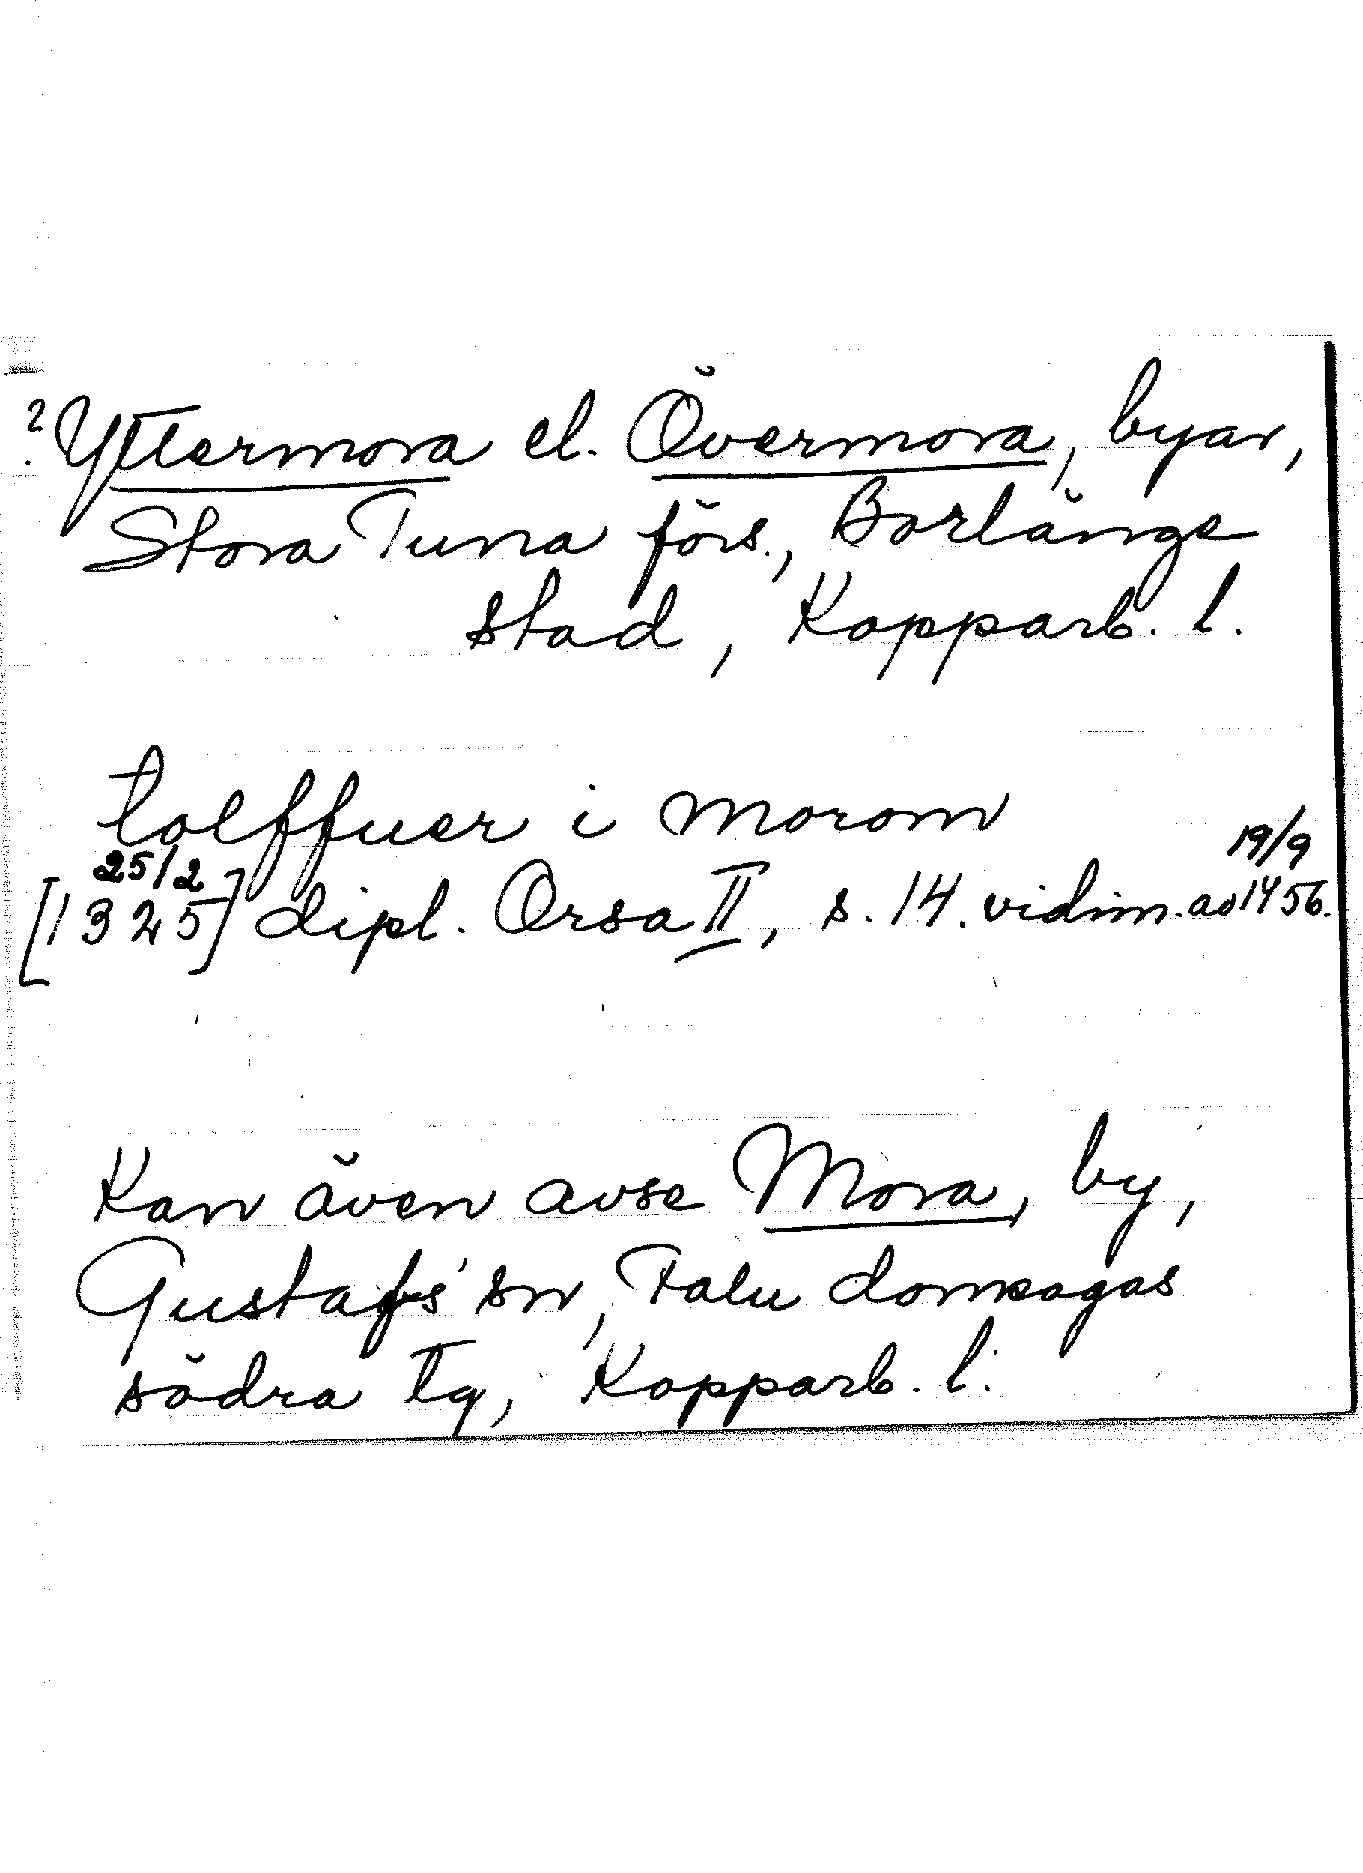 ? Yttermora el. Övermora, byar,
Stora Tuna förs., Borlänge
stad, Kopparb. l.
tolffuer i morom
25/2 19/9
[1325] dipl. Orsa II, s. 14. vidim. av 1456.
Kan även avse Mora, by,
Gustafs' sn, Falu domsagas
södra tg, Kopparb. l.